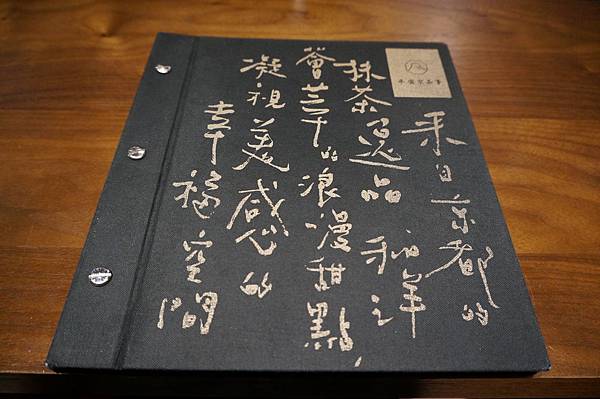 平安京茶事
来自京都的
抹茶逸品 和洋
薈萃的浪漫甜點,
凝視美感的
幸福空間